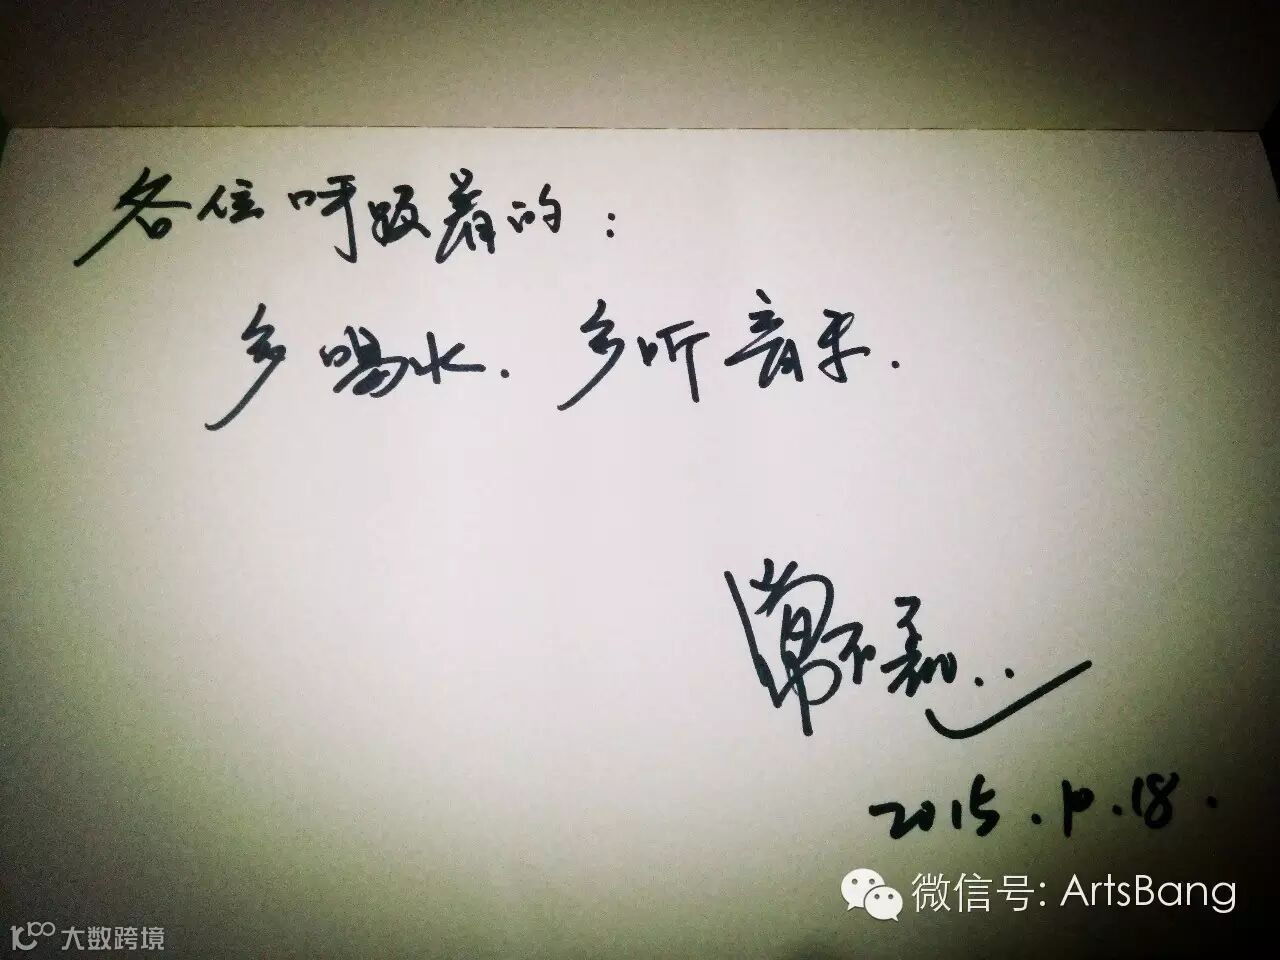 各位呼吸着的:
多喝水. 多听音乐.
2015.10.18.
微信号: ArtsBang
大数跨境